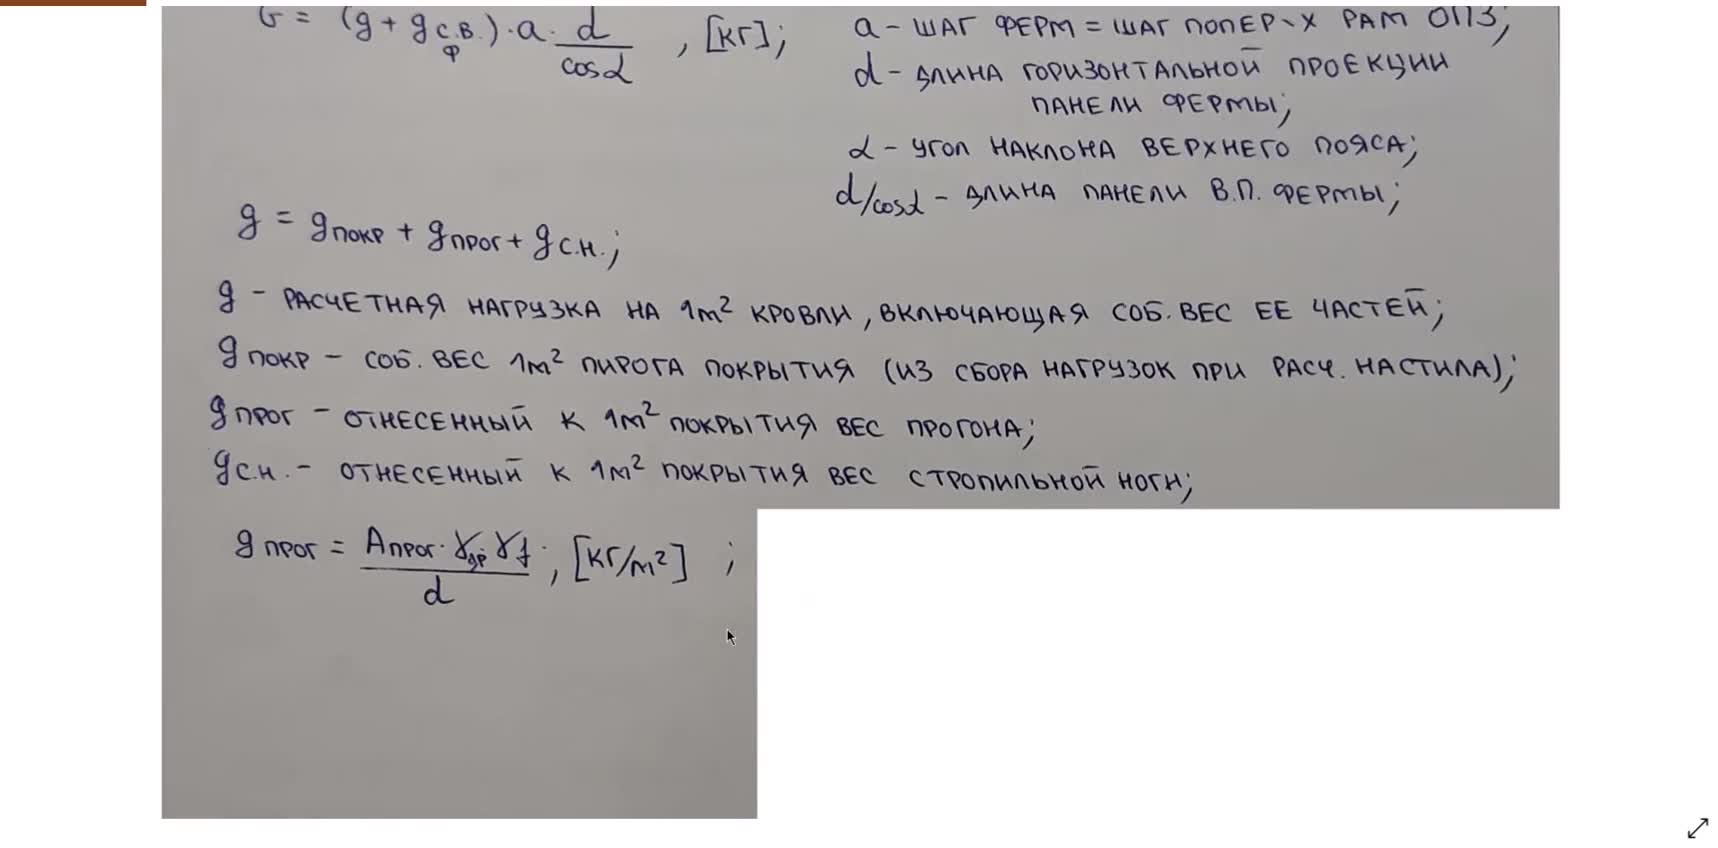 G = (g + g с.в. ф) · a · d / cosα , [кг];
a - ШАГ ФЕРМ = ШАГ ПОПЕР-Х РАМ ОПЗ;
d - ДЛИНА ГОРИЗОНТАЛЬНОЙ ПРОЕКЦИИ
ПАНЕЛИ ФЕРМЫ;
α - УГОЛ НАКЛОНА ВЕРХНЕГО ПОЯСА;
d/cosα - ДЛИНА ПАНЕЛИ В.П. ФЕРМЫ;
g = g ПОКР + g ПРОГ + g С.Н.;
g - РАСЧЕТНАЯ НАГРУЗКА НА 1м² КРОВЛИ, ВКЛЮЧАЮЩАЯ СОБ. ВЕС ЕЕ ЧАСТЕЙ;
g ПОКР - СОБ. ВЕС 1м² ПИРОГА ПОКРЫТИЯ (ИЗ СБОРА НАГРУЗОК ПРИ РАСЧ. НАСТИЛА);
g ПРОГ - ОТНЕСЕННЫЙ К 1м² ПОКРЫТИЯ ВЕС ПРОГОНА;
g С.Н. - ОТНЕСЕННЫЙ К 1м² ПОКРЫТИЯ ВЕС СТРОПИЛЬНОЙ НОГИ;
g ПРОГ = A ПРОГ · γ др · γ f / d , [кг/м²] ;